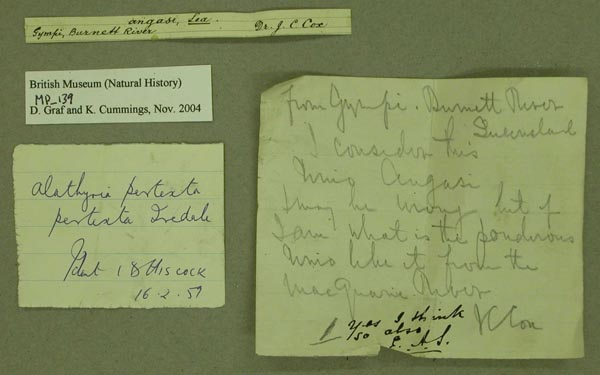 angasi, Lea.
Gympi, Burnett River Dr. J. C Cox
British Museum (Natural History)
MP_139
D. Graf and K. Cummings, Nov. 2004
Alathyria pertexta
pertexta Iredale
Ident I B Hiscock
16.2.51
From Gympi. Burnett River
Queensland
I consider this
Unio Angasi
I may be wrong but if
I am what is the ponderous
Unio like it from the
MacQuarie River
J C Cox
Yes I think
so also
E. A. S.